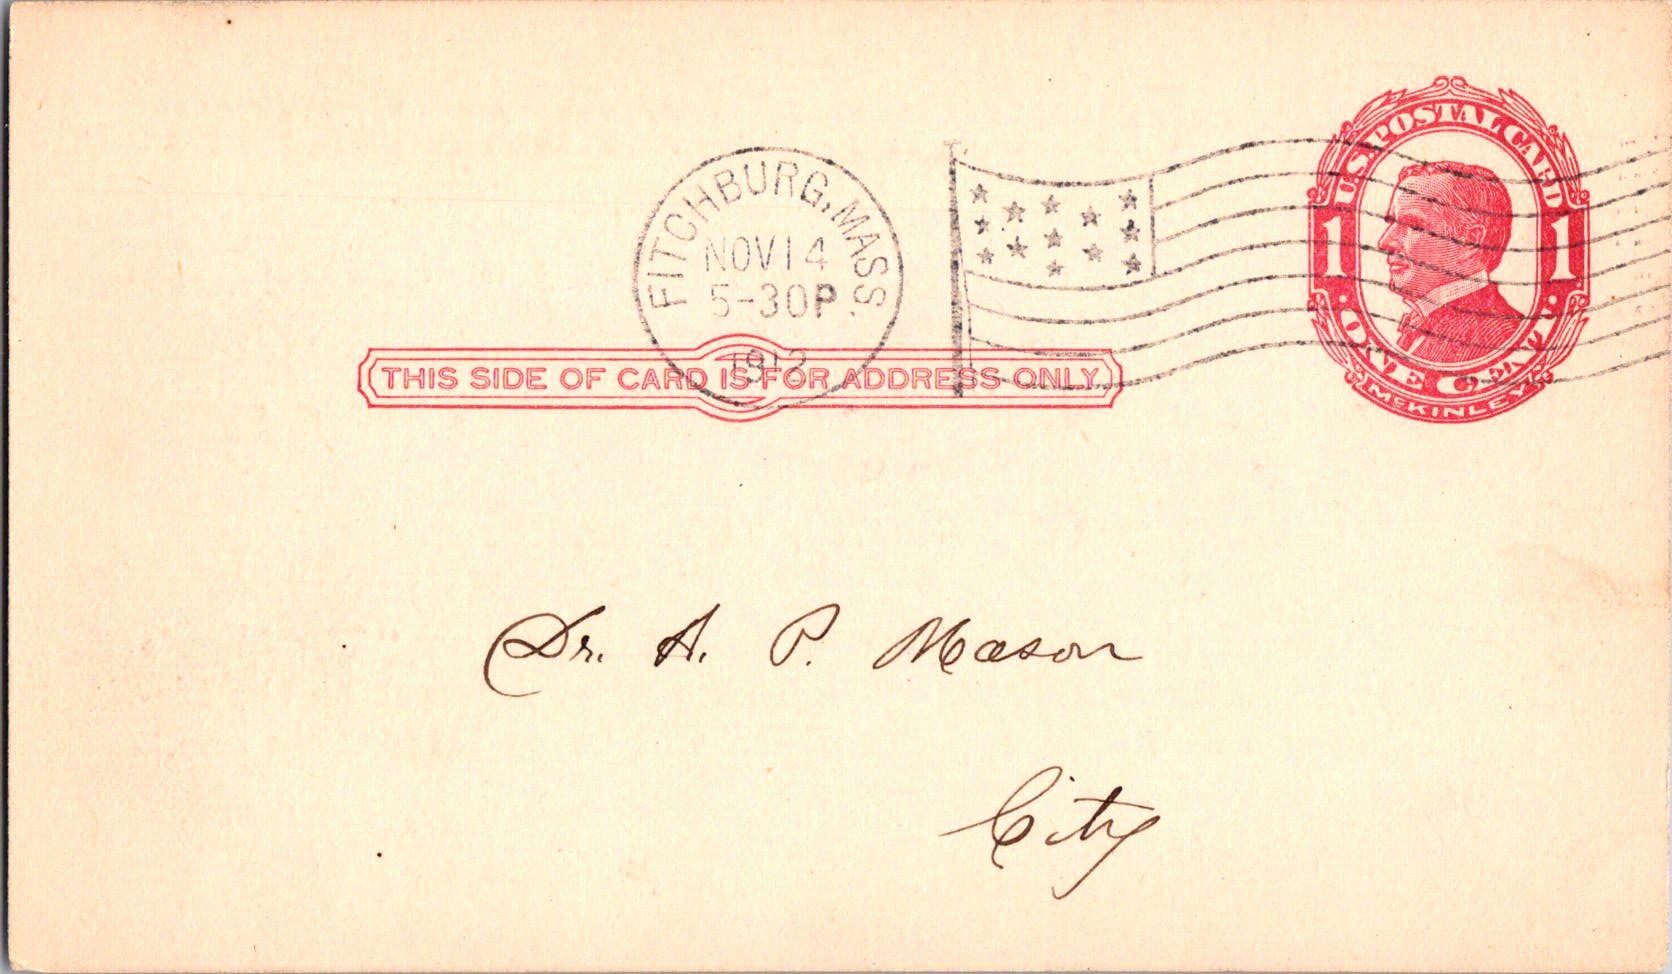 U.S. POSTAL CARD
1 1
ONE CENT
McKINLEY
FITCHBURG, MASS.
NOV 14
5-30P
1912
THIS SIDE OF CARD IS FOR ADDRESS ONLY
Dr. A. P. Mason
City